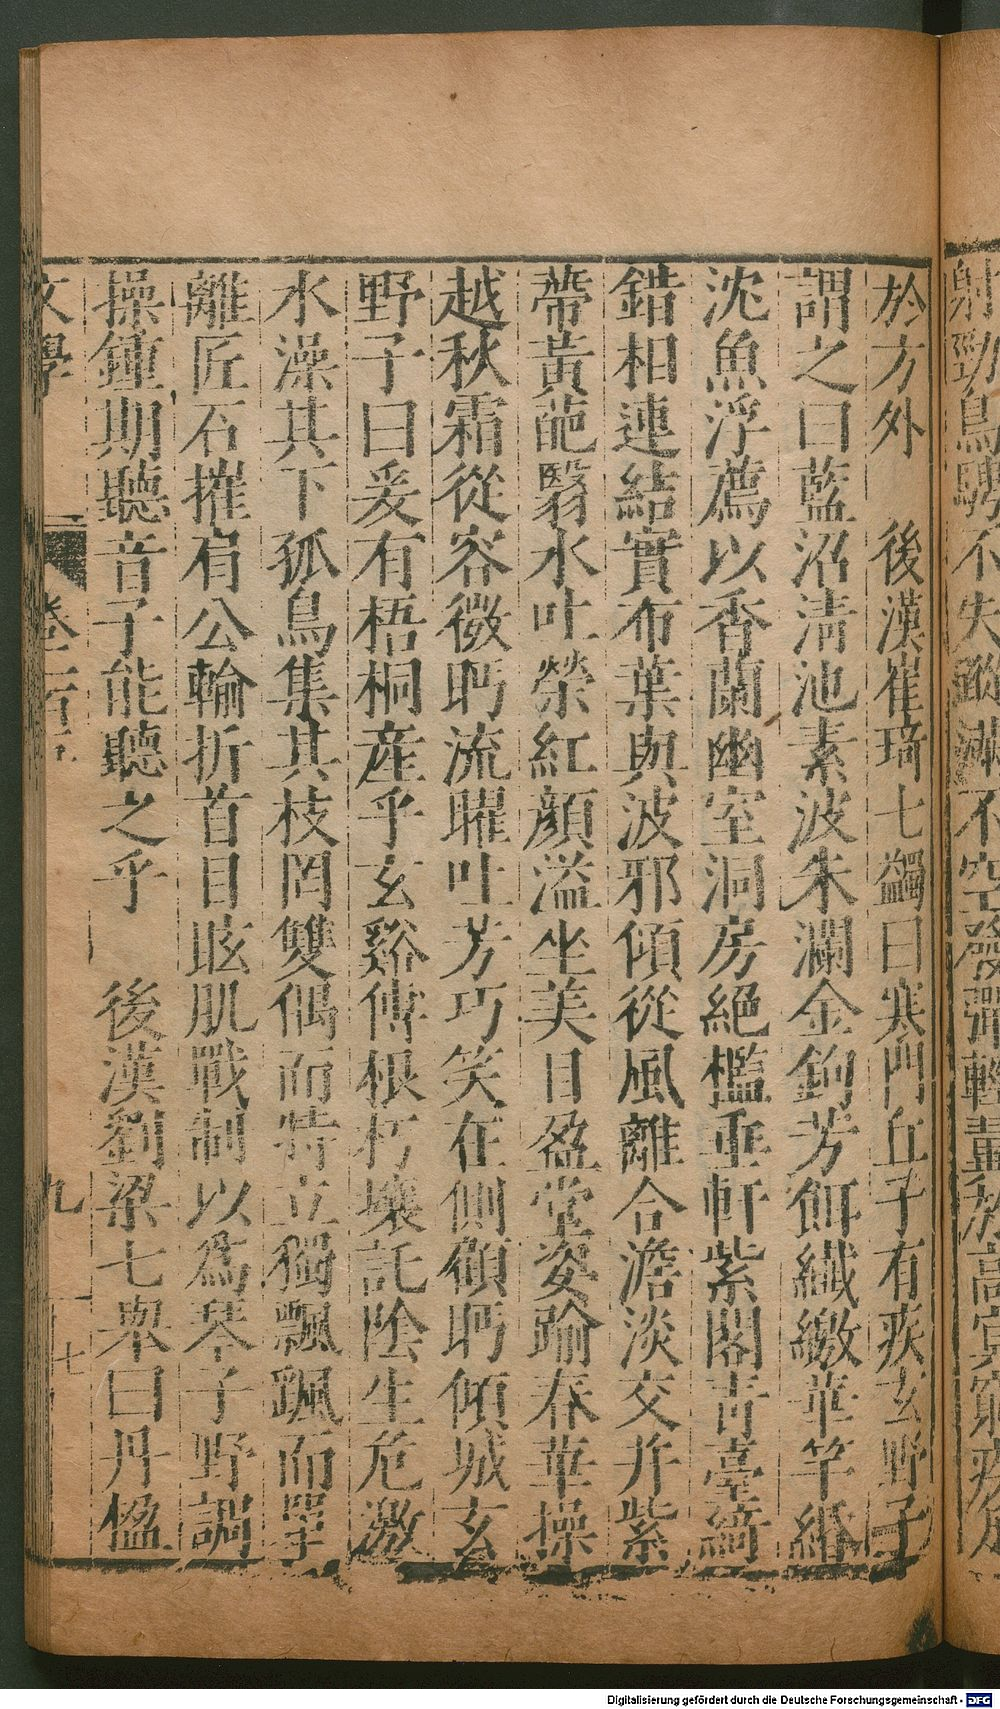 於方外　後漢崔琦七蠲曰寒門丘子有疾玄野子
謂之曰藍沼清池素波朱瀾金鉤芳餌纖繳華竿緡
沈魚浮薦以香蘭幽室洞房絕檻垂軒紫閣青臺綺
錯相連結實布葉與波邪傾從風離合澹淡交并紫
蒂黃葩翳水吐榮紅顏溢坐美目盈堂姿踰春華操
越秋霜從容微眄流曜吐芳巧笑在側顧眄傾城玄
野子曰爰有梧桐產乎玄谿傅根朽壤託陰生危激
水澡其下孤鳥集其枝罔雙偶而特立獨飄颻而單
離匠石摧肩公輸折首目眩肌戰制以為琴子野調
操鍾期聽音子能聽之乎　後漢劉梁七舉曰丹楹
文學
九
Digitalisierung gefördert durch die Deutsche Forschungsgemeinschaft - DFG